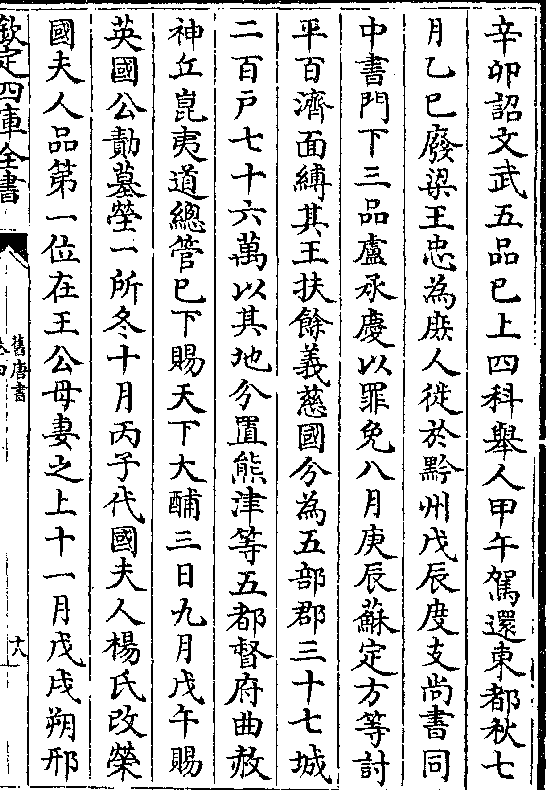 辛卯詔文武五品已上四科舉人甲午駕還東都秋七
月乙巳廢梁王忠為庶人徙於黔州戊辰度支尚書同
中書門下三品盧承慶以罪免八月庚辰蘇定方等討
平百濟面縛其王扶餘義慈國分為五部郡三十七城
二百戶七十六萬以其地分置熊津等五都督府曲赦
神丘崑夷道總管已下賜天下大酺三日九月戊午賜
英國公勣墓塋一所冬十月丙子代國夫人楊氏改榮
國夫人品第一位在王公母妻之上十一月戊戌朔邢
欽定四庫全書
舊唐書
卷四
十八